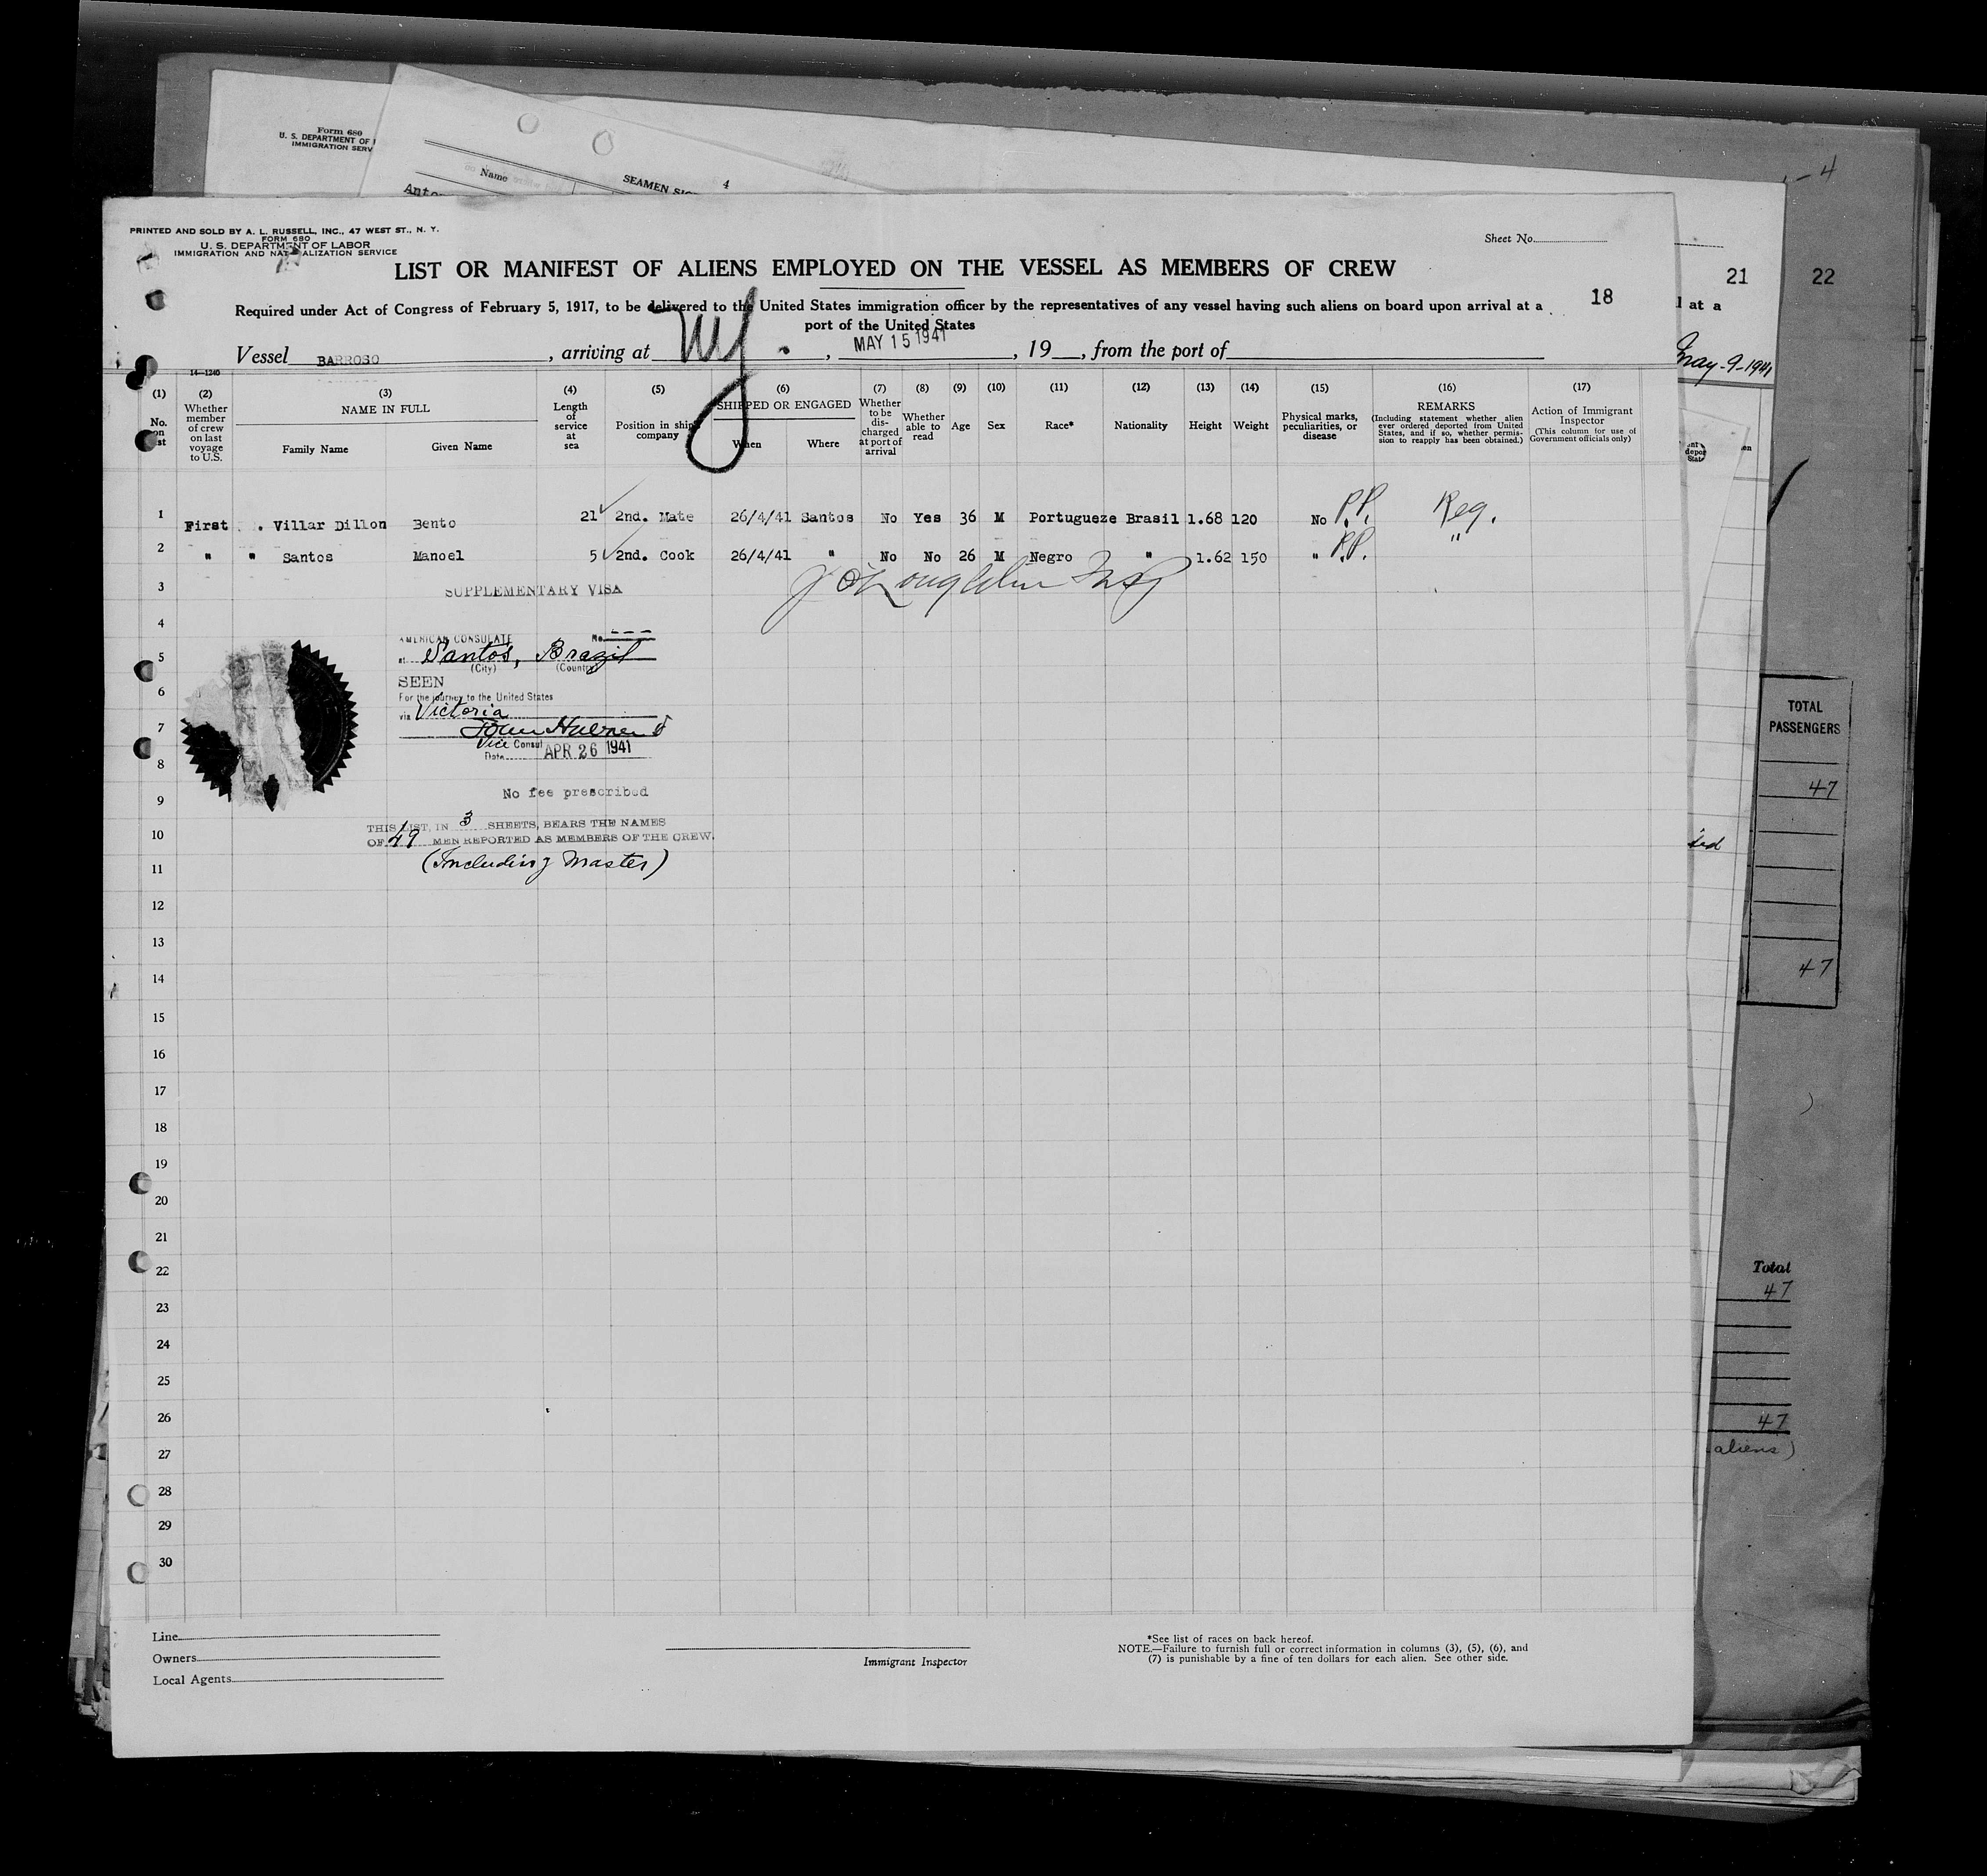 Form 680
U. S. DEPARTMENT OF
IMMIGRATION SERV
Name
SEAMEN
4
-4
PRINTED AND SOLD BY A. L. RUSSELL, INC., 47 WEST ST., N. Y.
FORM 680
U. S. DEPARTMENT OF LABOR
IMMIGRATION AND NATURALIZATION SERVICE
Sheet No.
LIST OR MANIFEST OF ALIENS EMPLOYED ON THE VESSEL AS MEMBERS OF CREW
21 22
Required under Act of Congress of February 5, 1917, to be delivered to the United States immigration officer by the representatives of any vessel having such aliens on board upon arrival at a 18
port of the United States
l at a
Vessel BARROSO, arriving at NY. , MAY 15 1941, 19 , from the port of
May-9-1941
14-1240
(1) (2) (3) (4) (5) (6) (7) (8) (9) (10) (11) (12) (13) (14) (15) (16) (17)
No. on list
Whether member of crew on last voyage to U.S.
NAME IN FULL
Family Name Given Name
Length of service at sea
Position in ship's company
SHIPPED OR ENGAGED
When Where
Whether to be discharged at port of arrival
Whether able to read
Age Sex Race* Nationality Height Weight
Physical marks, peculiarities, or disease
REMARKS
(Including statement whether alien ever ordered deported from United States, and if so, whether permission to reapply has been obtained.)
Action of Immigrant Inspector
(This column for use of Government officials only)
1 First . Villar Dillon Bento 21 2nd. Mate 26/4/41 Santos No Yes 36 M Portugueze Brasil 1.68 120 No P.P. Reg.
2 " " Santos Manoel 5 2nd. Cook 26/4/41 " No No 26 M Negro " 1.62 150 " P.P. "
3
SUPPLEMENTARY VISA
4
AMERICAN CONSULATE No. ---
5
at Santos, Brazil
(City) (Country)
SEEN
6
For the journey to the United States
via Victoria
7
Vice Consul
Date APR 26 1941
8
No fee prescribed
9
THIS LIST, IN 3 SHEETS, BEARS THE NAMES
10
OF 49 MEN REPORTED AS MEMBERS OF THE CREW.
(Including Master)
11
12
13
14
15
16
17
18
19
20
21
22
23
24
25
26
27
28
29
30
TOTAL
PASSENGERS
47
47
Total
47
47
aliens)
Line
Owners
Local Agents
Immigrant Inspector
*See list of races on back hereof.
NOTE.—Failure to furnish full or correct information in columns (3), (5), (6), and
(7) is punishable by a fine of ten dollars for each alien. See other side.